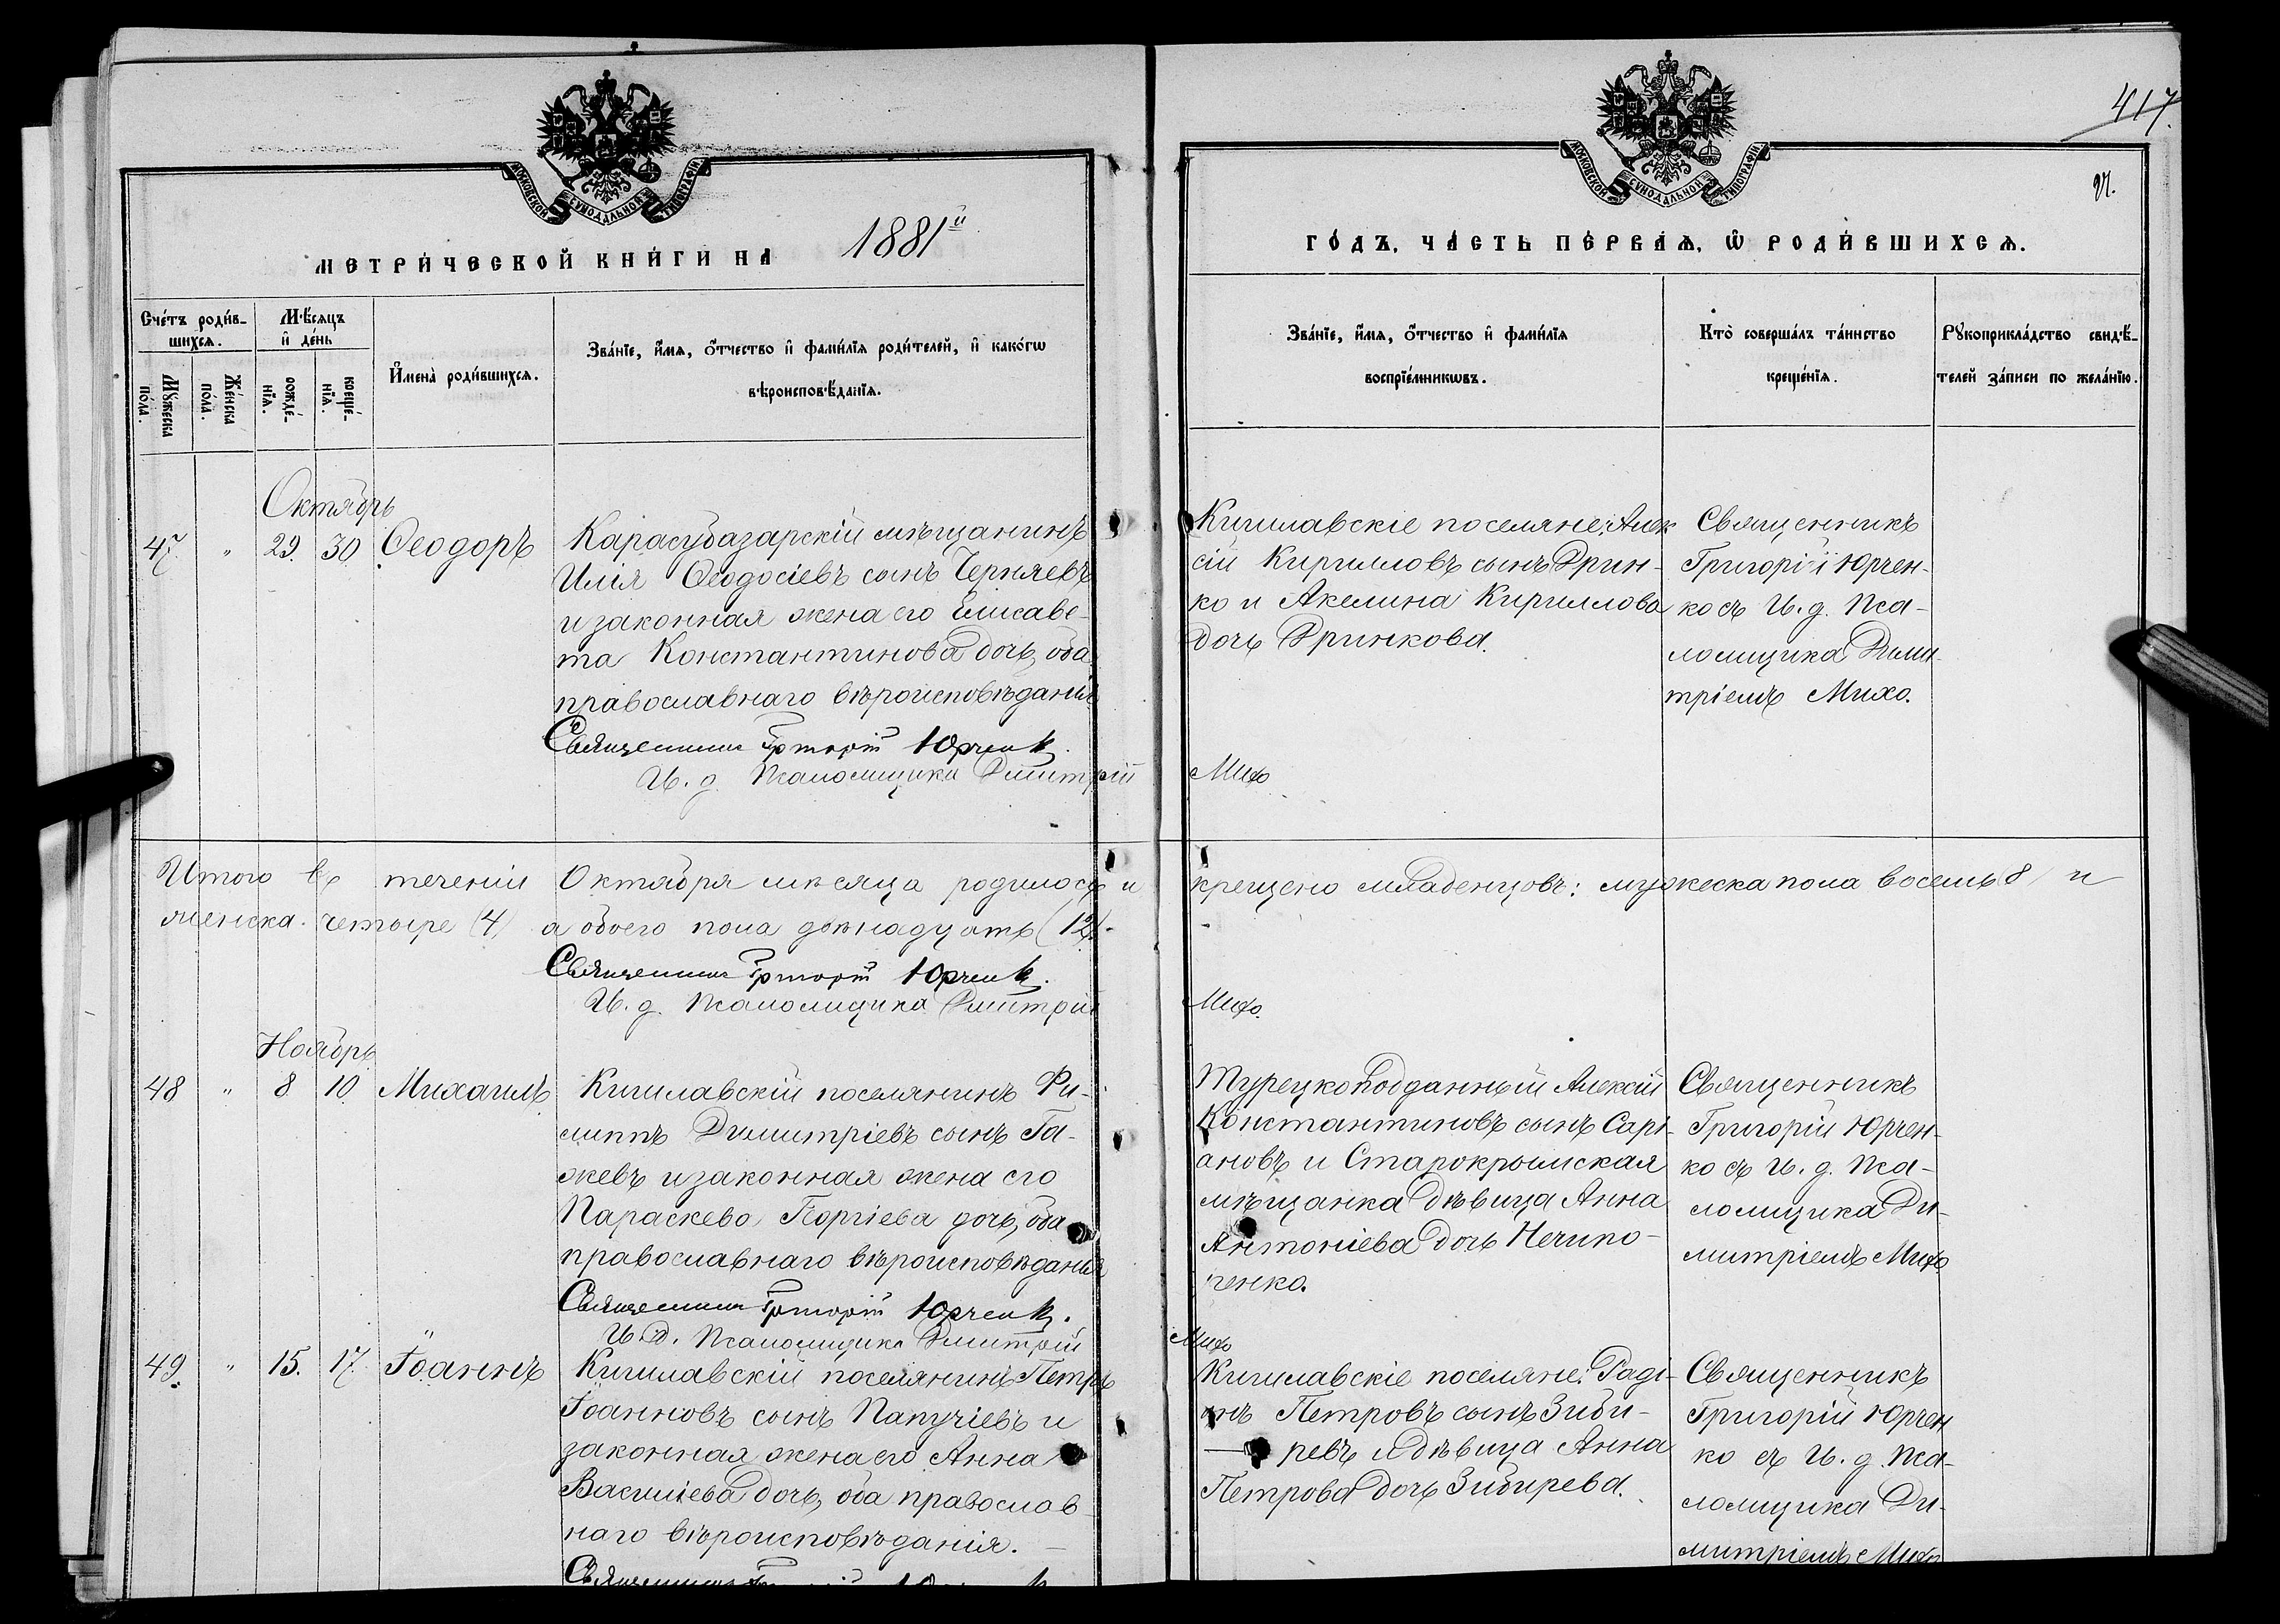 417.
МОСКОВСКОЙ СѴНОДАЛЬНОЙ ТИПОГРАФІИ
МОСКОВСКОЙ СѴНОДАЛЬНОЙ ТИПОГРАФІИ
МЕТРИ́ЧЕСКОЙ КНИ́ГИ НА 1881й
ГО́ДЪ, ЧА́СТЬ ПЕ́РВАѦ, Ѡ РОДИ́ВШИХСѦ.
Сче́тъ роди́в-
шихсѧ.
Мѣ́сѧцъ
и де́нь
Мꙋ́жеска
по́ла.
Же́нска
по́ла.
рожде́-
нїѧ.
креще́-
нїѧ.
И҆мена̀ роди́вшихсѧ.
Зва́нїе, и҆́мѧ, ѻ҆́тчество и҆ фами́лїѧ роди́телей, и҆ како́гѡ
вѣроисповѣ́данїѧ.
Зва́нїе, и҆́мѧ, ѻ҆́тчество и҆ фами́лїѧ
воспрїе́мникѡвъ.
Кто̀ соверша́лъ та́инство
креще́нїѧ.
Рꙋкоприкла́дство свидѣ́-
телей за́писи по жела́нїю.
Октябрь
47. " 29. 30. Ѳеодоръ
Карасубазарскій мѣщанинъ
Илія Ѳеодосіевъ сынъ Черняевъ
и законная жена его Елисаве-
та Константинова дочь, оба
православнаго вѣроисповѣданія
Священникъ Григорій Юрченко.
И. д. Псаломщика Димитрій Михо
Кишлавскіе поселяне: Алек
сій Кирилловъ сынъ Дрин-
ко и Акелина Кириллова
дочь Дринкова.
Священникъ
Григорій Юрчен-
ко съ И. д. Пса-
ломщика Дими-
тріемъ Михо.
Итого въ теченіи Октября мѣсяца родилось и крещено младенцовъ: мужеска пола восемь 8/ и
женска четыре (4) а обоего пола двѣнадцать (12).
Священникъ Григорій Юрченко.
И. д. Псаломщика Димитрій Михо.
Ноябрь
48 " 8 10. Михаилъ
Кишлавскій поселянинъ Фи-
липпъ Димитріевъ сынъ Га-
жевъ и законная жена его
Параскева Георгіева дочь, оба
православнаго вѣроисповѣданія
Священникъ Григорій Юрченко.
И. д. Псаломщика Димитрій Михо
Турецкоподданный Алексій
Константиновъ сынъ Сарі-
ановъ и Старокрымская
мѣщанка дѣвица Анна
Антоніева дочь Нечипо-
ренко.
Священникъ
Григорій Юрчен-
ко съ И. д. Пса-
ломщика Ди-
митріемъ Михо
49. " 15. 17. Іоаннъ
Кишлавскій поселянинъ Петръ
Іоанновъ сынъ Папучіевъ и
законная жена его Анна
Василіева дочь, оба православ-
наго вѣроисповѣданія.
Священникъ Григорій Юрченко
Кишлавскіе поселяне: Раді-
онъ Петровъ сынъ Зиби-
ревъ и дѣвица Анна
Петрова дочь Зибирева.
Священникъ
Григорій Юрчен
ко съ И. д. Пса-
ломщика Ди-
митріемъ Михо